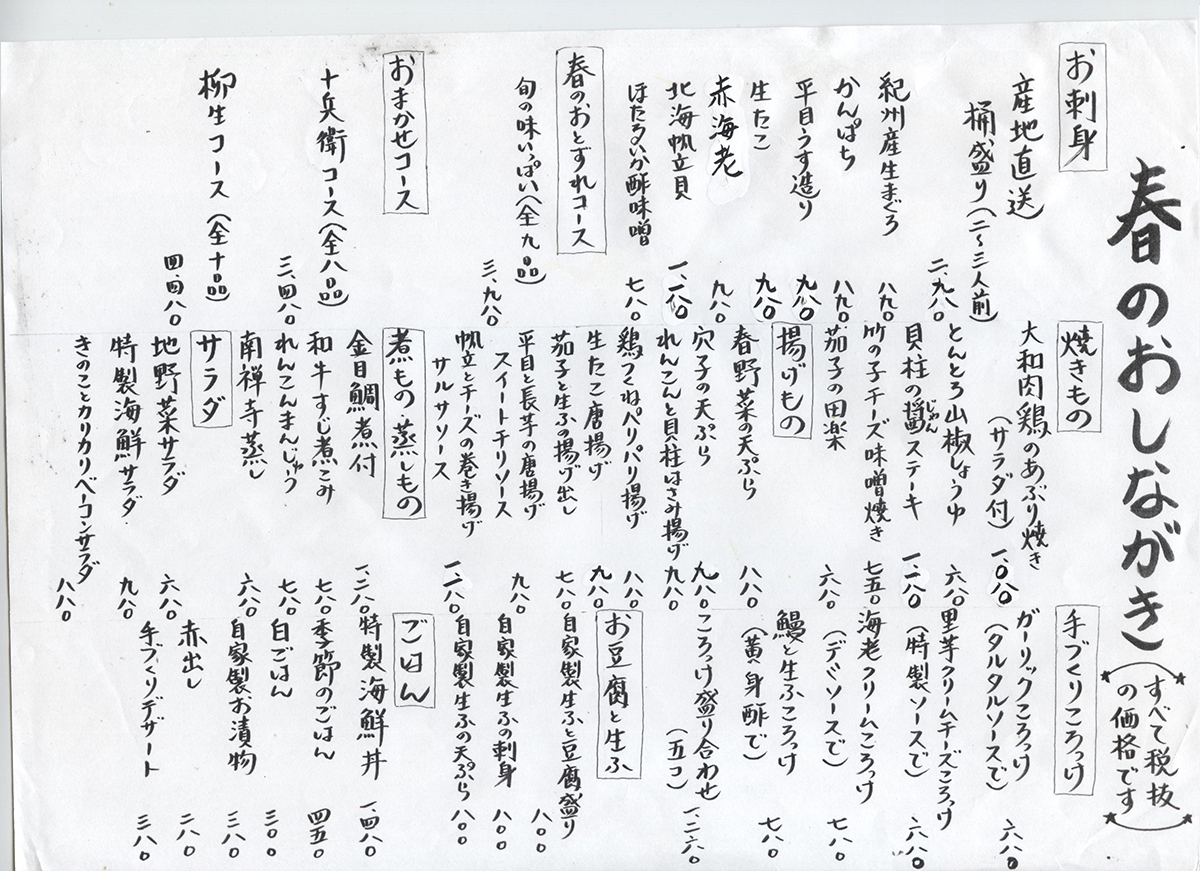 春のおしながき
(すべて税抜
の価格です)
お刺身
産地直送
桶盛り(二〜三人前)
二、九八〇
紀州産生まぐろ
八八〇
かんぱち
八八〇
平目うす造り
九八〇
生たこ
九八〇
赤海老
九八〇
北海帆立貝
一、一八〇
ほたるいか酢味噌
七八〇
春のおとずれコース
旬の味いっぱい(全九品)
三、九八〇
おまかせコース
十兵衛コース(全八品)
三、四八〇
柳生コース(全十品)
四、四八〇
焼きもの
大和肉鶏のあぶり焼き
(サラダ付)
一、〇八〇
とんとろ山椒しょうゆ
六八〇
貝柱の醤ステーキ
じゃん
一、一八〇
竹の子チーズ味噌焼き
七五〇
茄子の田楽
六八〇
揚げもの
春野菜の天ぷら
八八〇
穴子の天ぷら
九八〇
れんこんと貝柱はさみ揚げ
九八〇
鶏つくねパリパリ揚げ
八八〇
生たこ唐揚げ
九八〇
茄子と生ふの揚げ出し
七八〇
平目と長芋の唐揚げ
スイートチリソース
九八〇
帆立とチーズの巻き揚げ
サルサソース
一、一八〇
煮もの・蒸しもの
金目鯛煮付
一、二八〇
和牛すじ煮こみ
七八〇
れんこんまんじゅう
七八〇
南禅寺蒸し
六八〇
サラダ
地野菜サラダ
六八〇
特製海鮮サラダ
九八〇
きのことカリカリベーコンサラダ
八八〇
手づくりころっけ
ガーリックころっけ
(タルタルソースで)
六八〇
里芋クリームチーズころっけ
(特製ソースで)
六八〇
海老クリームころっけ
(デミソースで)
七八〇
鰻と生ふころっけ
(黄身酢で)
七八〇
ころっけ盛り合わせ
(五コ)
一、二八〇
お豆腐と生ふ
自家製生ふと豆腐盛り
八〇〇
自家製生ふの刺身
八〇〇
自家製生ふの天ぷら
八〇〇
ごはん
特製海鮮丼
一、四八〇
季節のごはん
四五〇
白ごはん
三〇〇
自家製お漬物
三八〇
赤出し
二八〇
手づくりデザート
三八〇